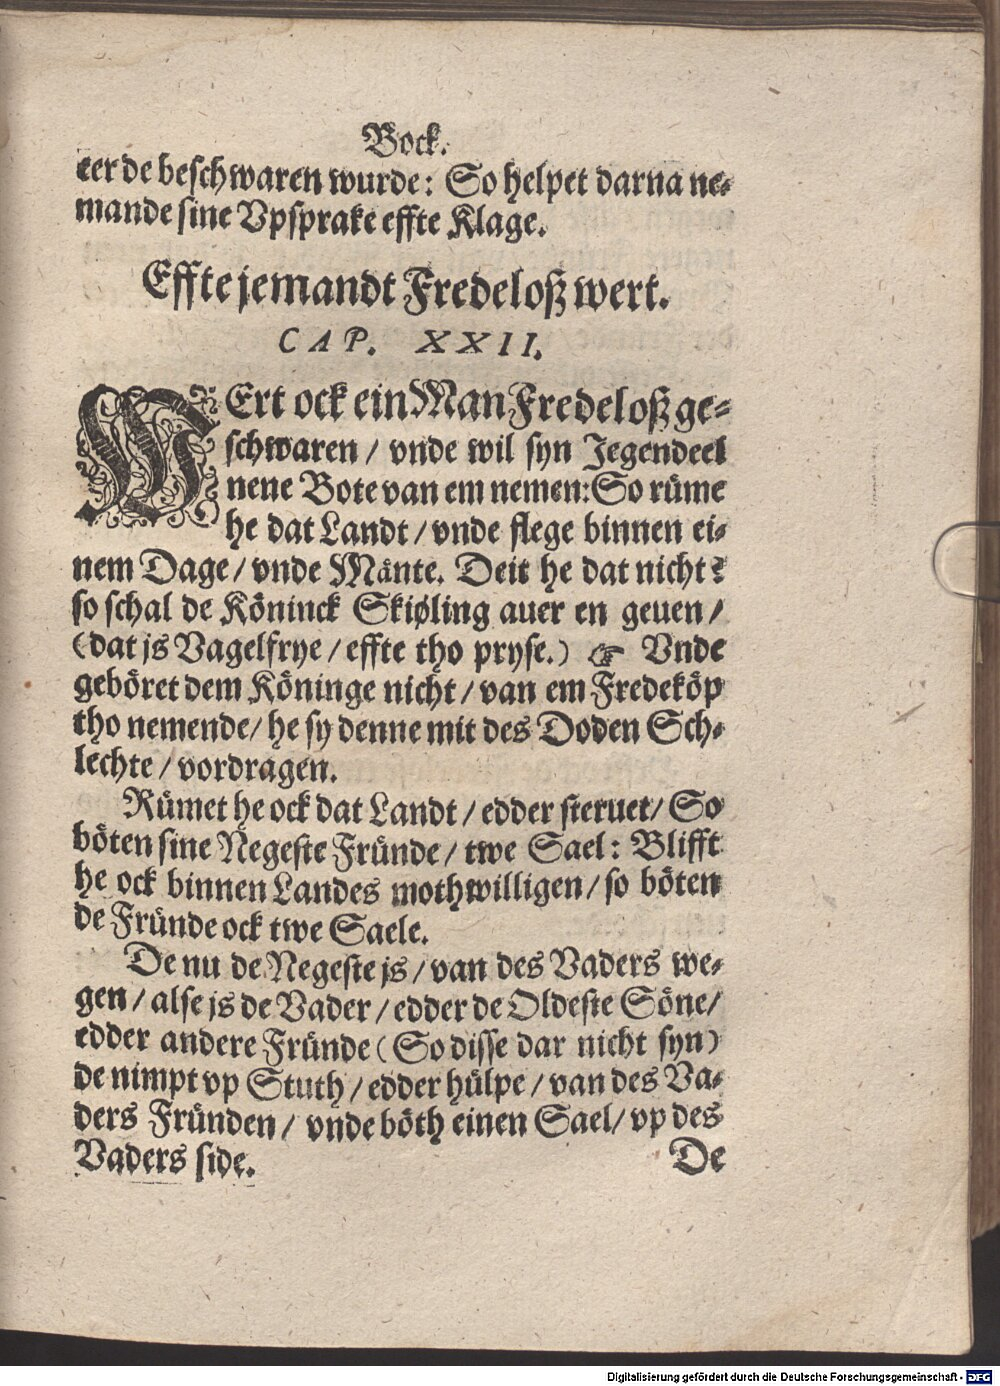 Bock.
eer de beschwaren wurde: So helpet darna ne-
mande sine Vpsprake effte Klage.
Effte jemandt Fredeloß wert.
CAP. XXII.
WErt ock ein Man Fredeloß ge-
schwaren / vnde wil syn Jegendeel
nene Bote van em nemen: So rüme
he dat Landt / vnde flege binnen ei-
nem Dage / vnde Månte. Deit he dat nicht?
so schal de Köninck Skiøling auer en geuen /
(dat js Vagelfrye / effte tho pryse.) ☞ Vnde
geböret dem Köninge nicht / van em Fredeköp
tho nemende / he sy denne mit des Doden Sch-
lechte / vordragen.
Rümet he ock dat Landt / edder steruet / So
böten sine Negeste Fründe / twe Sael: Blifft
he ock binnen Landes mothwilligen / so böten
de Fründe ock twe Saele.
De nu de Negeste js / van des Vaders we-
gen / alse js de Vader / edder de Oldeste Söne /
edder andere Fründe (So disse dar nicht syn)
de nimpt vp Stuth / edder hülpe / van des Va-
ders Fründen / vnde böth einen Sael / vp des
Vaders side.
De
Digitalisierung gefördert durch die Deutsche Forschungsgemeinschaft - DFG